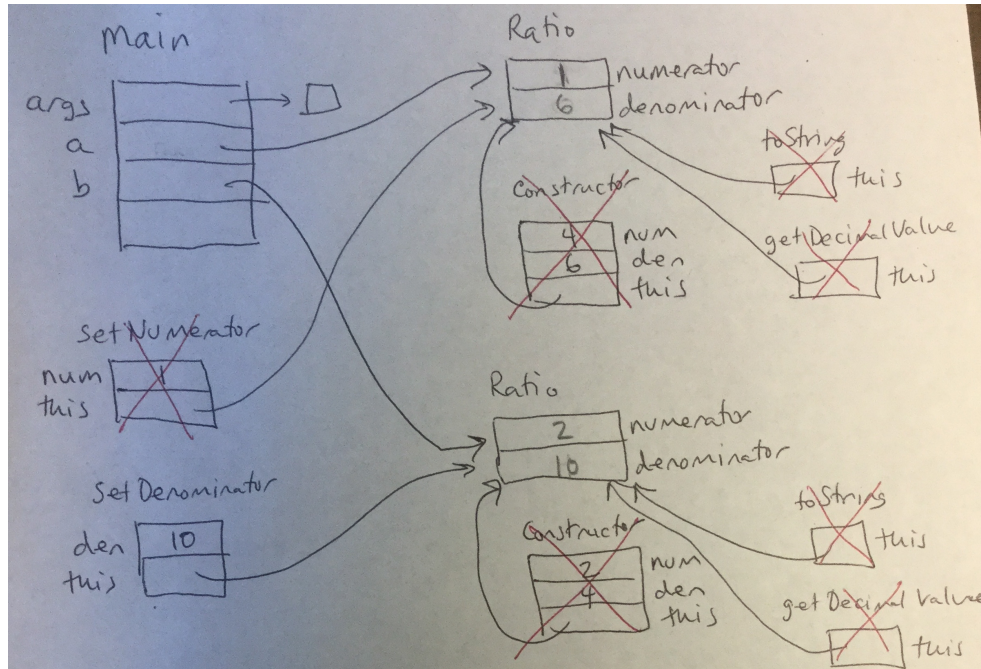 Main
args
a
b
Ratio
1 numerator
6 denominator
toString
this
Constructor
4 num
6 den
this
getDecimalValue
this
setNumerator
num 1
this
Ratio
2 numerator
10 denominator
Set Denominator
den 10
this
toString
this
Constructor
2 num
4 den
this
getDecimalValue
this